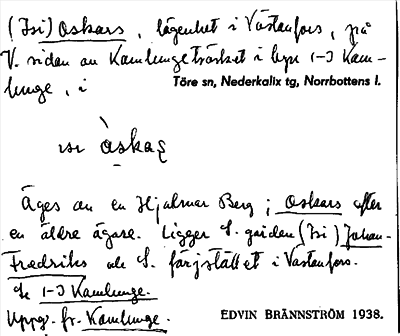 (Isi) Oskars, lägenhet i Västanfors, på
V. sidan av Kamlungeträsket i byn 1-3 Kam-
lunge, i
Töre sn, Nederkalix tg, Norrbottens l.
ɪsɪ òskaʂ
Äges av en Hjalmar Berg; Oskars efter
en äldre ägare. Ligger S. gården (Isi) Johan-
Fredriks och S. färjstället i Västanfors.
Se 1-3 Kamlunge.
Uppg. fr. Kamlunge.
EDVIN BRÄNNSTRÖM 1938.